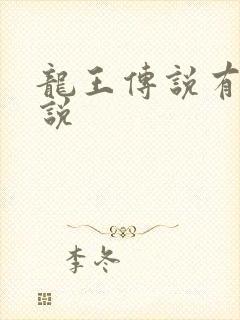 龍王傳說有
說
李冬